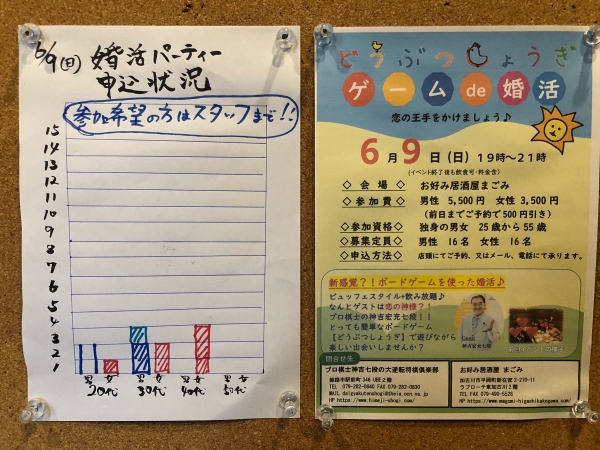 6/9(日) 婚活パーティー
申込状況
参加希望の方はスタッフまで!!
15
14
13
12
11
10
9
8
7
6
5
4
3
2
1
男 女 男 女 男 女 男 女
20代 30代 40代 50代
どうぶつしょうぎ
ゲーム de 婚活
恋の王手をかけましょう♪
6月9日(日) 19時〜21時
(イベント終了後も飲食可・料金含)
◇会場◇ お好み居酒屋まごみ
◇参加費◇ 男性 5,500円 女性 3,500円
(前日までご予約で500円引き)
◇参加資格◇ 独身の男女 25歳から55歳
◇募集定員◇ 男性 16名 女性 16名
◇申込方法◇ 店頭にてご予約、又はメール、電話にて承ります。
新感覚?!ボードゲームを使った婚活♪
ビュッフェスタイル+飲み放題♪
なんとゲストは恋の神様?!
プロ棋士の神吉宏充七段!!
とっても簡単なボードゲーム
【どうぶつしょうぎ】で遊びながら
楽しい出会いしませんか?
神吉宏充七段
問合せ先
プロ棋士神吉七段の大逆転将棋倶楽部
姫路市駅前町346 UBE2階
お好み居酒屋 まごみ